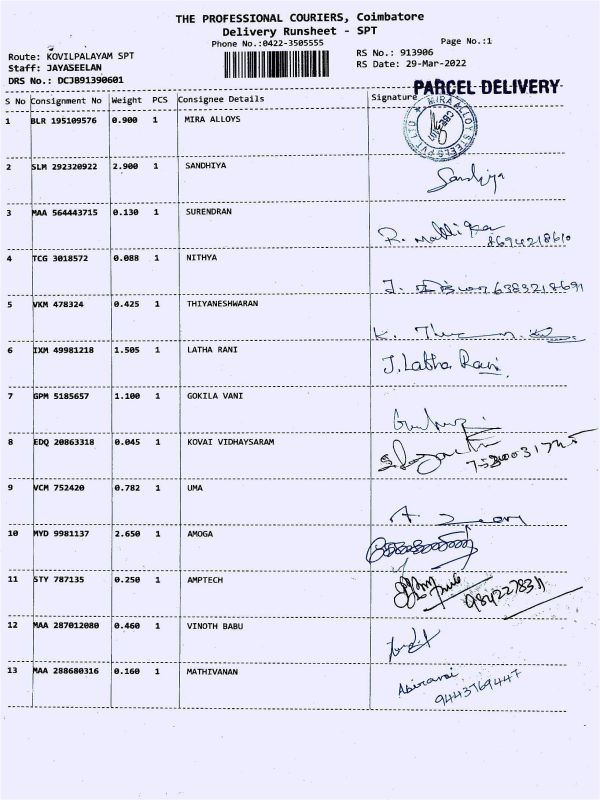 THE PROFESSIONAL COURIERS, Coimbatore
Delivery Runsheet - SPT
Phone No.:0422-3505555
Page No.:1
Route: KOVILPALAYAM SPT
RS No.: 913906
Staff: JAYASEELAN
RS Date: 29-Mar-2022
DRS No.: DCJB91390601
PARCEL DELIVERY
S No Consignment No Weight PCS Consignee Details Signature
1 BLR 195109576 0.900 1 MIRA ALLOYS
MIRA ALLOY STEELS PVT LTD
2 SLM 292320922 2.900 1 SANDHIYA
Sandhiya
3 MAA 564443715 0.130 1 SURENDRAN
R. Mallika
8694218610
4 TCG 3018572 0.088 1 NITHYA
6383218691
5 VKM 478324 0.425 1 THIYANESHWARAN
6 IXM 49981218 1.505 1 LATHA RANI
J. Latha Rani
7 GPM 5185657 1.100 1 GOKILA VANI
8 EDQ 20863318 0.045 1 KOVAI VIDHAYSARAM
9 VCM 752420 0.782 1 UMA
10 MYD 9981137 2.650 1 AMOGA
11 STY 787135 0.250 1 AMPTECH
12 MAA 287012080 0.460 1 VINOTH BABU
13 MAA 288680316 0.160 1 MATHIVANAN
Abirami
9443769447